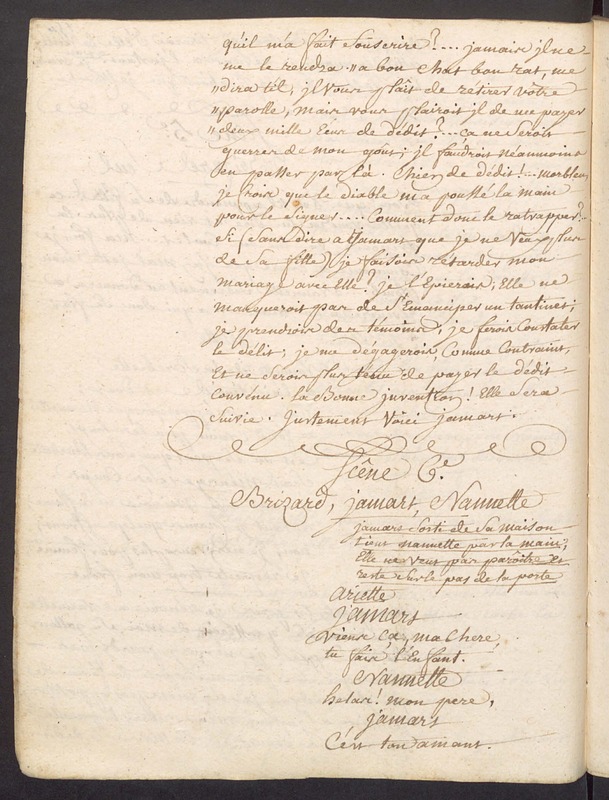 qu'il m'a fait souscrire?.... jamais jl ne
me le rendra. "a bon chat bon rat, me
"dira t'il; jl vous plaît de retirer vôtre
"parolle, mais vous plairoit jl de me payer
"deux mille écus de dédit?... ça ne seroit
guerres de mon goût; jl faudroit néanmoins
en passer par là. chien de dédit!... morbleu,
je crois que le diable m'a poussé la main
pour le signer.... Comment donc le ratrapper?..
si (sans dire a Jamars que je ne veux plus
de sa fille) je faisois retarder mon
mariage avec Elle? je l'Epierois; Elle ne
manqueroit pas de s'Emanciper un tantinet;
je prendrois des témoins; je ferois Constater
le délit; je me dégagerois Comme Contraint,
Et ne serois plus tenu de payer le dédit
convénu. la Bonne jnvention! Elle sera
suivie. justement voici jamars.
Scêne 6.e
Brizard, jamars, Nannette
jamars sorti de sa maison
tient nannette par la main;
Elle ne veut pas parôitre Et
reste sur le pas de la porte
ariette
jamars
viens ça, ma chere,
tu fais l'Enfant.
Nannette
helas! mon pere,
jamars
C'est ton amant.